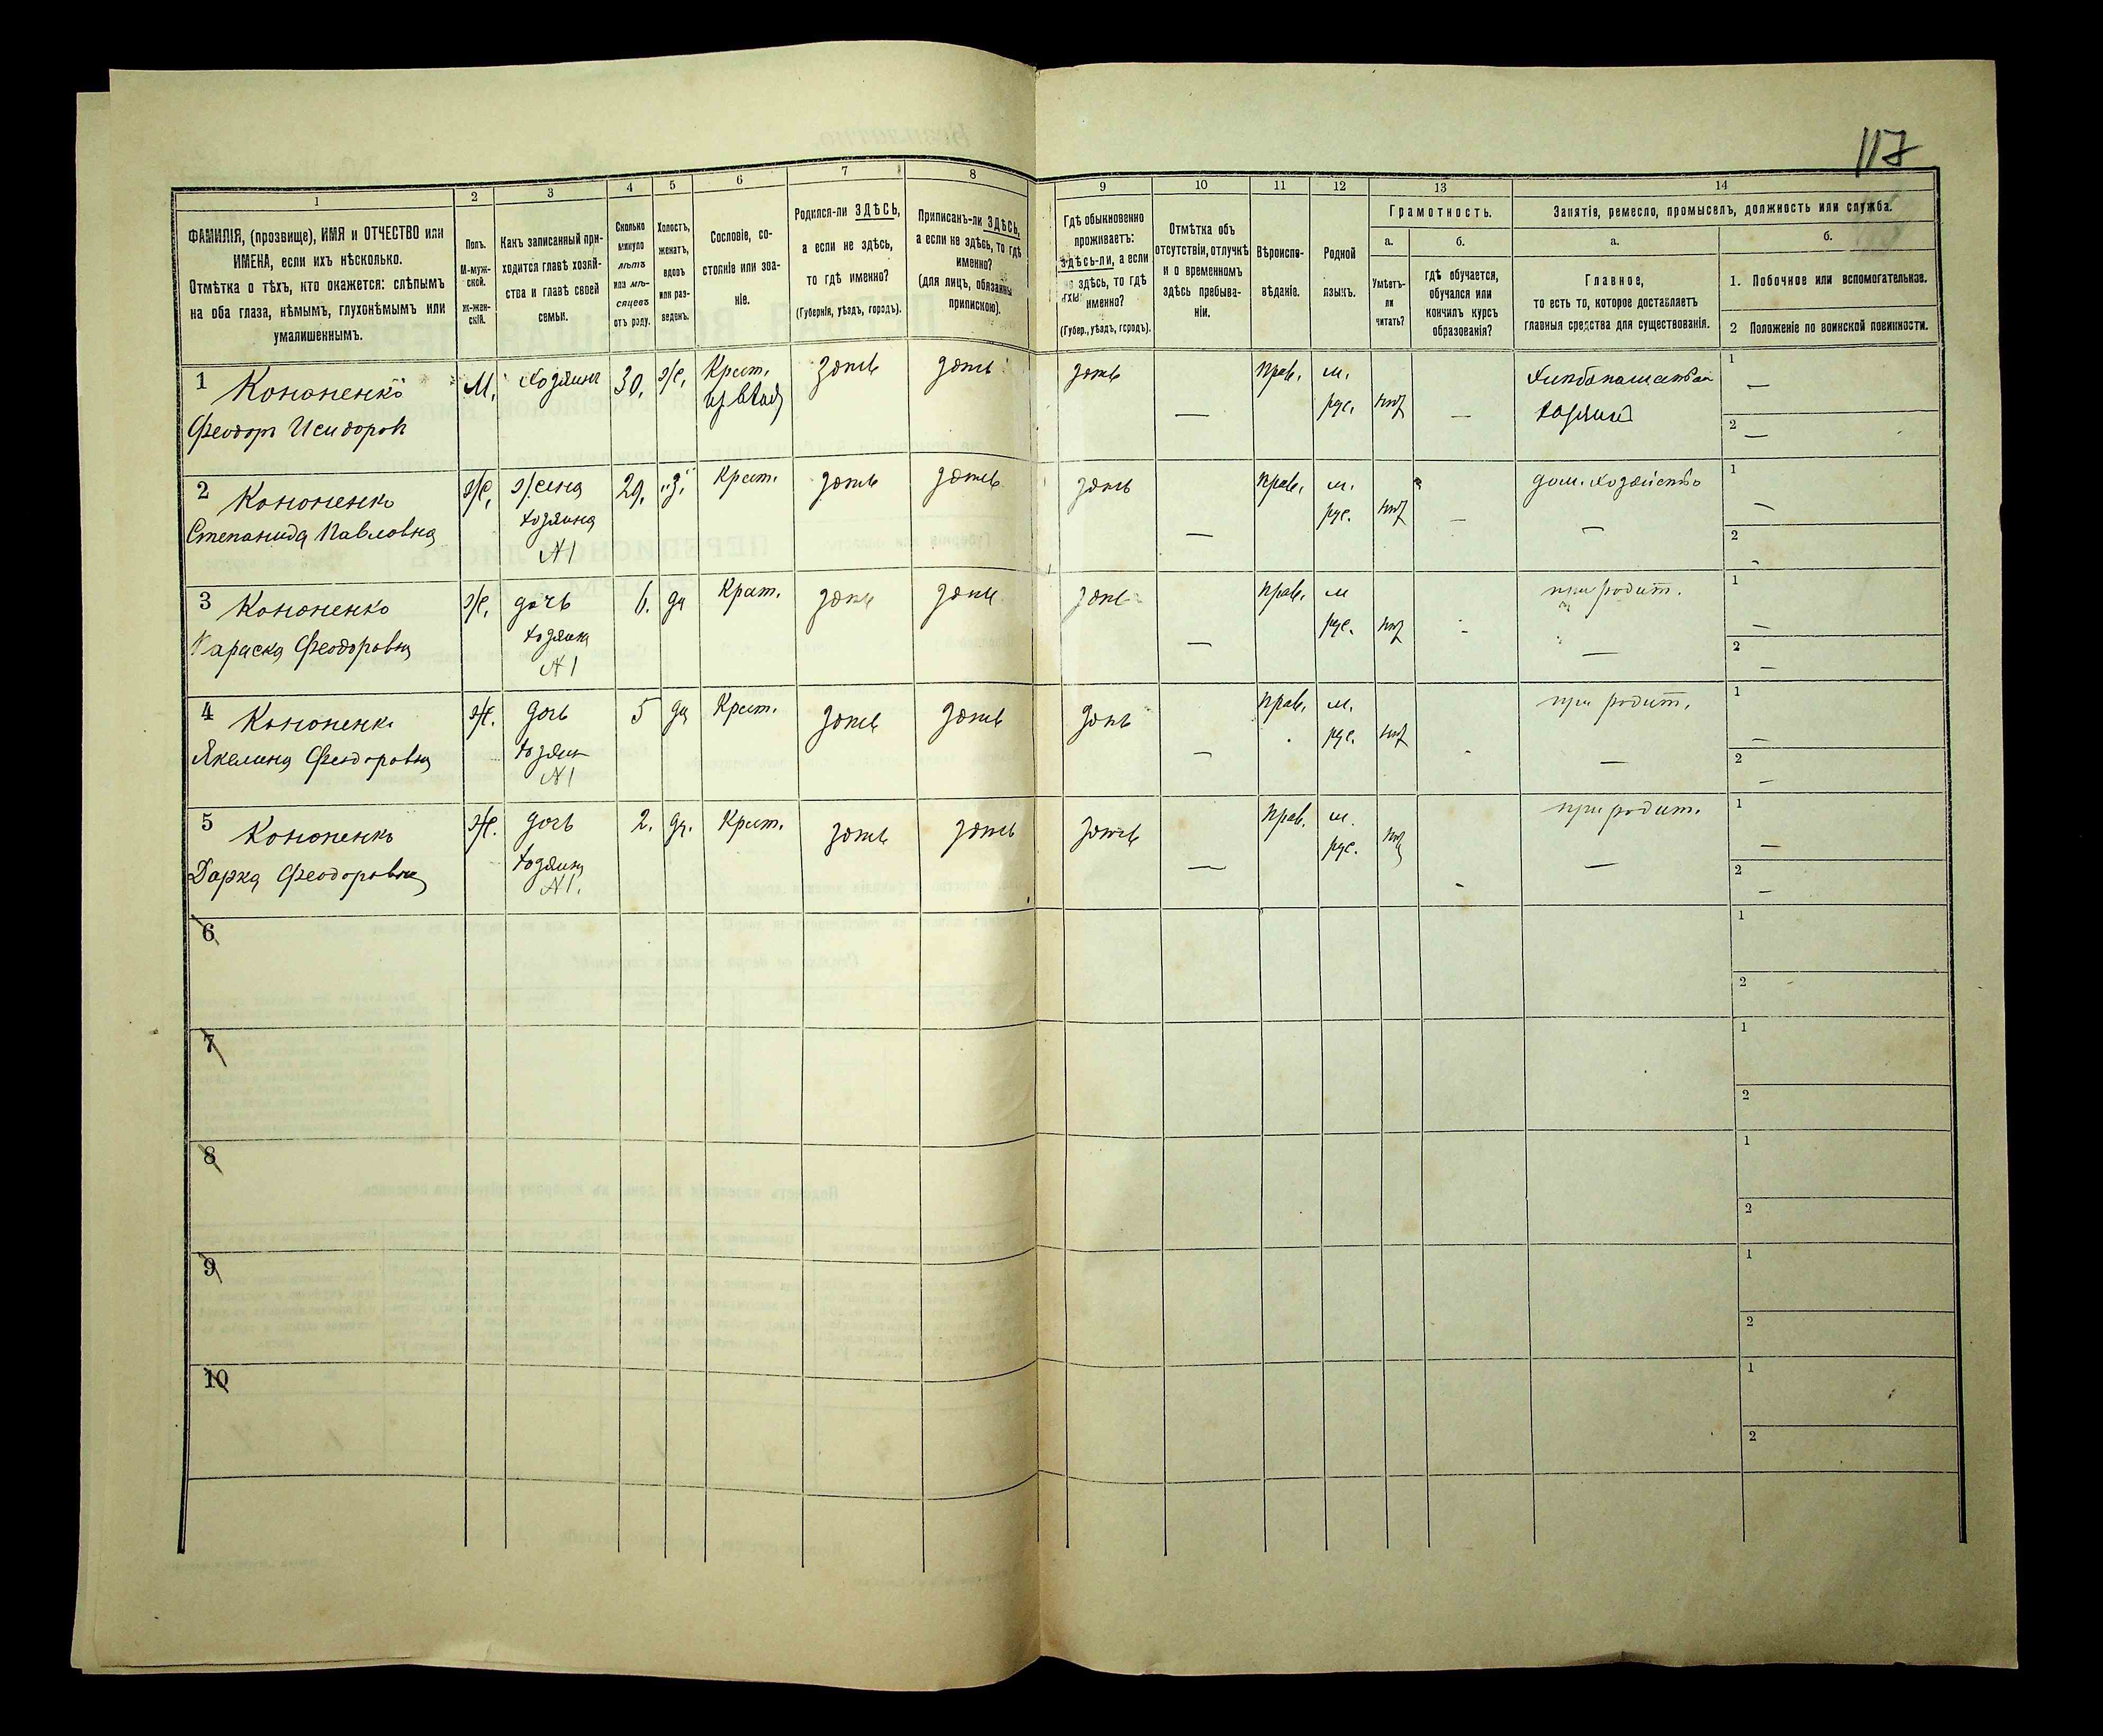 117
1 2 3 4 5 6 7 8 9 10 11 12 13 14
ФАМИЛІЯ, (прозвище), ИМЯ и ОТЧЕСТВО или
ИМЕНА, если ихъ нѣсколько.
Отмѣтка о тѣхъ, кто окажется: слѣпымъ
на оба глаза, нѣмымъ, глухонѣмымъ или
умалишеннымъ.
Полъ.
М-муж-
ской.
ж-жен-
скій.
Какъ записанный при-
ходится главѣ хозяй-
ства и главѣ своей
семьи.
Сколько
минуло
лѣтъ
или мѣ-
сяцевъ
отъ роду.
Холостъ,
женатъ,
вдовъ
или раз-
веденъ.
Сословіе, со-
стояніе или зва-
ніе.
Родился-ли ЗДѢСЬ,
а если не здѣсь,
то гдѣ именно?
(Губернія, уѣздъ, городъ).
Приписанъ-ли ЗДѢСЬ,
а если не здѣсь, то гдѣ
именно?
(для лицъ, обязанныхъ
припискою).
Гдѣ обыкновенно
проживаетъ:
ЗДѢСЬ-ли, а если
не здѣсь, то гдѣ
именно?
(Губер., уѣздъ, городъ).
Отмѣтка объ
отсутствіи, отлучкѣ
и о временномъ
здѣсь пребыва-
ніи.
Вѣроиспо-
вѣданіе.
Родной
языкъ.
Грамотность.
а.
Умѣетъ-
ли
читать?
б.
гдѣ обучается,
обучался или
кончилъ курсъ
образованія?
Занятія, ремесло, промыселъ, должность или служба.
а.
Главное,
то есть то, которое доставляетъ
главныя средства для существованія.
б.
1. Побочное или вспомогательное.
2 Положеніе по воинской повинности.
1 Кононенко М. Хозяинъ 30. ж. Крест. здѣсь здѣсь здѣсь — Прав. м. нѣт — 1 —
Феодоръ Исидоровъ рус. 2 —
2 Кононенко ж. жена 29. з. Крест. здѣсь здѣсь здѣсь — Прав. м. нѣт — дом. хозяйство 1 —
Степанида Павловна хозяина рус. — 2 —
№1
3 Кононенко ж. дочь 6. дѣ Крест. здѣсь здѣсь здѣсь — Прав. м нѣт - при родит. 1 —
Параска Феодоровна хозяина рус. — 2 —
№1
4 Кононенко ж. дочь 5 дѣ Крест. здѣсь здѣсь здѣсь — Прав. м. нѣт - при родит. 1 —
Якелина Феодоровна хозяина рус. — 2 —
№1
5 Кононенко ж. дочь 2. дѣ. Крест. здѣсь здѣсь здѣсь — Прав. м. нѣт - при родит. 1 —
Дарка Феодоровна хозяина рус. — 2 —
№1.
6 1
2
7 1
2
8 1
2
9 1
2
10 1
2